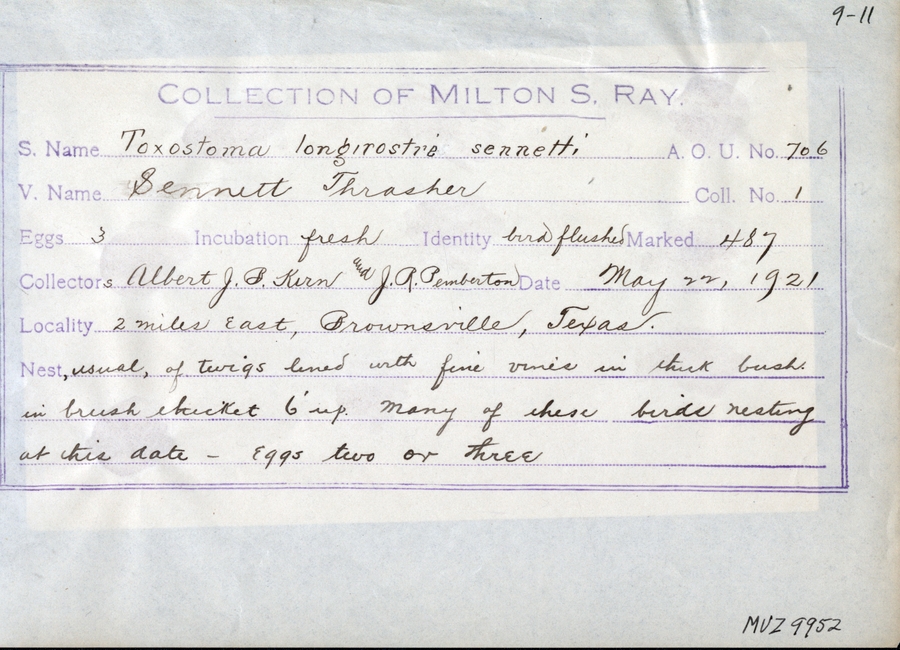 9-11
COLLECTION OF MILTON S. RAY.
S. Name Toxostoma longirostre sennetti A. O. U. No. 706
V. Name Sennett Thrasher Coll. No. 1
Eggs 3 Incubation fresh Identity bird flushed Marked 487
Collectors Albert J. B. Kirn and J. R. Pemberton Date May 22, 1921
Locality 2 miles East, Brownsville, Texas.
Nest, usual, of twigs lined with fine vines in thick bush.
in brush thicket 6' up. Many of these birds nesting
at this date - Eggs two or three
MVZ 9952